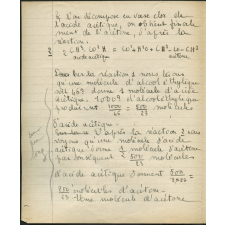 Si l'on décompose en vase clos de
l'acide acétique, on obtient finale
ment de l'acétone, d'après la
réaction.
2 CH³ CO²H = CO² + H²O + CH³-CO-CH³
acide acétique acétone
la réaction 1 nous voyons
qu'une molécule d'alcool éthylique
soit 46g donne 1 molécule d'acide
acétique. 1000g d'alcool éthylique
produiront 1000/46 = 500/23 molécules
d'acide acétique.
D'après la réaction 2 nous
voyons qu'une molécule d'acide
acétique donne 1/2 molécule d'acétone
par conséquent 500/23 molécules
d'acide acétique donnent 500/2×23 =
250/23 molécules d'acétone.
Une molécule d'acétone